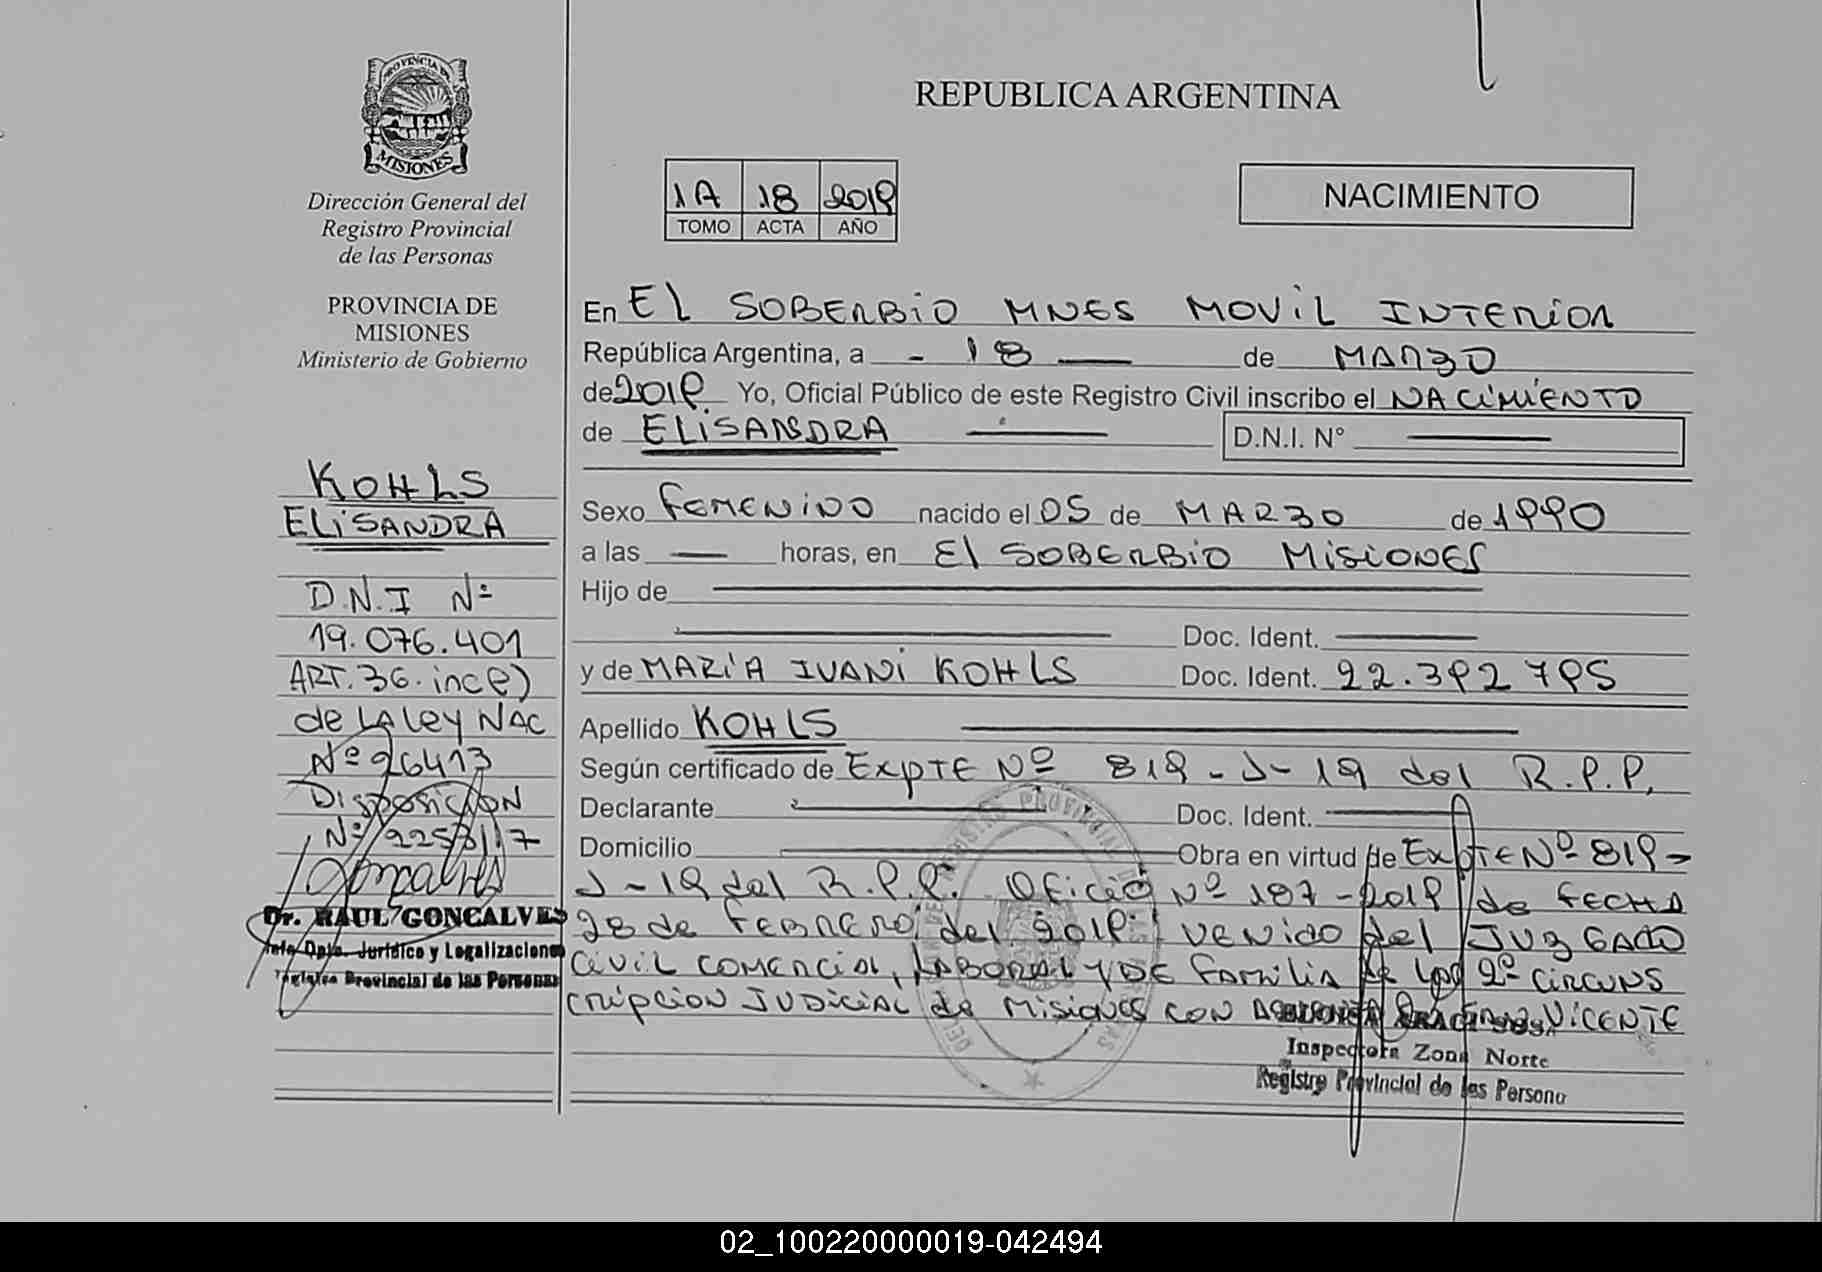 PROVINCIA DE
MISIONES
Dirección General del
Registro Provincial
de las Personas
PROVINCIA DE
MISIONES
Ministerio de Gobierno
KOHLS
ELISANDRA
D.N.I Nº
19.076.401
ART.36.inc e)
de LA Ley NAC
Nº 26413
Disposición
Nº 2253/17
Goncalves
Dr. RAUL GONCALVES
Jefe Dpto. Jurídico y Legalizaciones
Registro Provincial de las Personas
REPUBLICA ARGENTINA
1A 18 2019
TOMO ACTA AÑO
NACIMIENTO
En El SOBERBIO MNES MOVIL INTERIOR
República Argentina, a - 18 — de MARZO
de 2019 Yo, Oficial Público de este Registro Civil inscribo el NACIMIENTO
de ELISANDRA — D.N.I. N° —
Sexo FEMENINO nacido el 05 de MARZO de 1990
a las — horas, en El SOBERBIO MISIONES
Hijo de —
— Doc. Ident. —
y de MARÍA IVANI KOHLS Doc. Ident. 22.392 795
Apellido KOHLS —
Según certificado de EXPTE Nº 819-J-19 del R.P.P.
Declarante — Doc. Ident. —
Domicilio — Obra en virtud de EXPTE Nº 819-
J-19 del R.P.P. Oficio Nº 187-2019 de FECHA
28 de FEBRERO del 2019 VENIDO del JUZGADO
CIVIL COMERCIAL, LABORAL Y DE FAMILIA de la 2º CIRCUNS
CRIPCION JUDICIAL de MISIONES CON VICENTE
Inspectora Zona Norte
Registro Provincial de las Persona
02_100220000019-042494